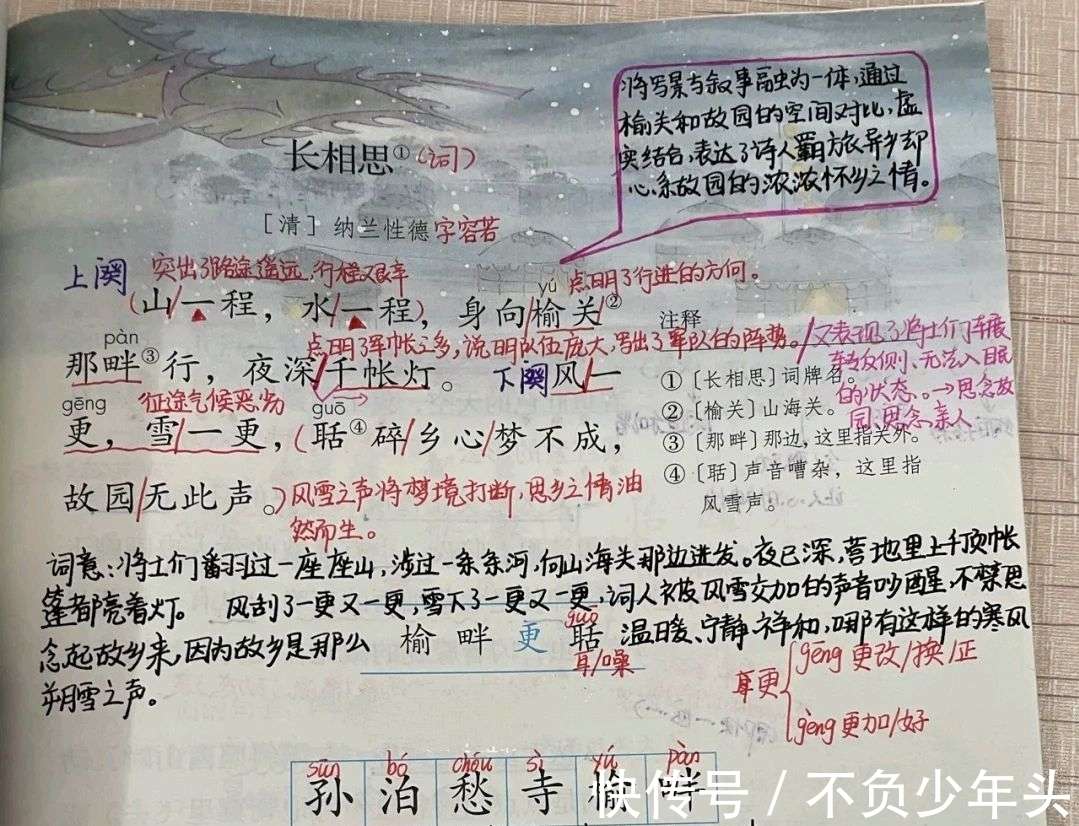 将写景与叙事融为一体,通过
榆关和故园的空间对比,虚
实结合,表达了诗人羁旅异乡却
心系故园的浓浓怀乡之情。
长相思①(词)
[清] 纳兰性德 字容若
上阕 突出了路途遥远,行程艰辛
yú 点明了行进的方向。
(山/一程,水/一程),身向/榆关②
pàn 点明了军帐之多,说明队伍庞大,写出了军队的阵势。/又表现了将士们辗转
辗转反侧、无法入眠
的状态。→思念故
园、思念亲人
那畔③行,夜深/千帐灯。 下阕 风/一
gēng 征途气候恶劣 guō
更,雪/一更,(聒④碎/乡心/梦不成,
故园/无此声。)风雪之声将梦境打断,思乡之情油
然而生。
注释
①〔长相思〕词牌名。
②〔榆关〕山海关。
③〔那畔〕那边,这里指关外。
④〔聒〕声音嘈杂,这里指
风雪声。
词意:将士们翻过一座座山,涉过一条条河,向山海关那边进发。夜已深,营地里上千顶帐
篷都亮着灯。 风刮了一更又一更,雪下了一更又一更,词人被风雪交加的声音吵醒,不禁思
念起故乡来,因为故乡是那么 温暖、宁静、祥和,哪有这样的寒风
朔雪之声。
guō
榆 畔 更 聒
耳/噪
更 gēng 更改/换/正
gèng 更加/好
sūn bó chóu sì yú pàn
孙 泊 愁 寺 榆 畔
快传号 / 不负少年头